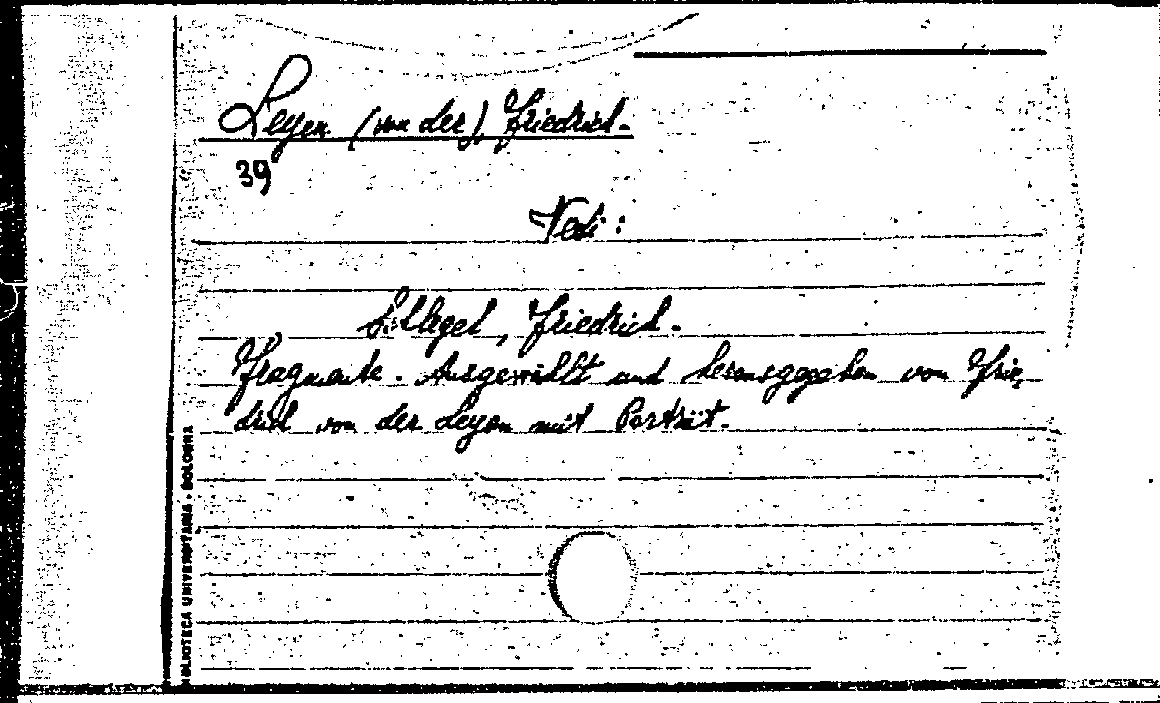 Leyen (von der) Friedrich.
39
Vedi:
Schlegel, Friedrich.
Fragmente. Ausgewählt und herausgegeben von Frie-
drich von der Leyen mit Porträt.
BIBLIOTECA UNIVERSITARIA - BOLOGNA